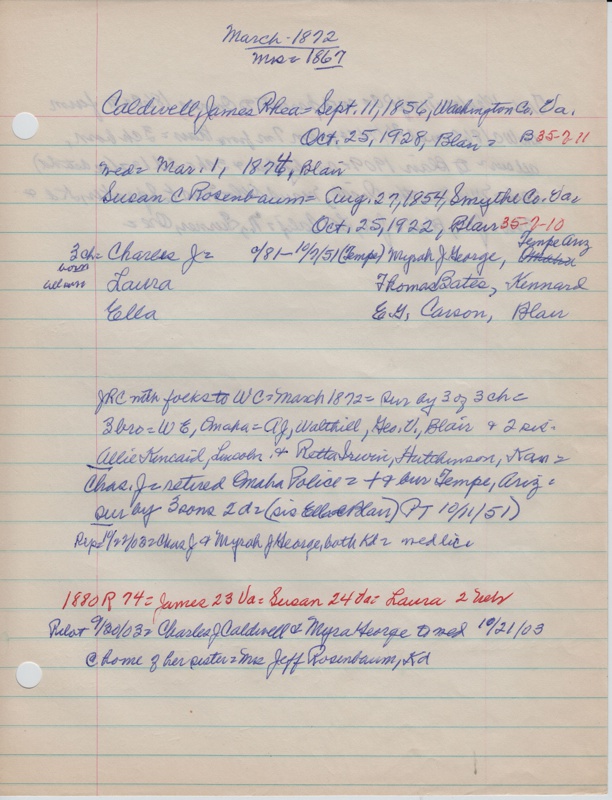 March - 1872
Mrs = 1867
Caldwell, James Rhea = Sept. 11, 1856, Washington Co. Va.
Oct. 25, 1928, Blair = B 35-7-11
md = Mar. 1, 1874, Blair
Susan C Rosenbaum = Aug. 27, 1854, Smythe Co. Va.
Oct, 25, 1922, Blair 35-7-10
3 ch = Charles J = 0/81 - 10/7/51 (Tempe) Myrah J George, Tempe Ariz Omaha
Laura Thomas Bates, Kennard
Ella E.G. Carson, Blair
JRC with folks to WC = March 1872 = sur by 3 of 3 ch =
3 bro = W E, Omaha = AJ, Walthill, Geo. V., Blair & 2 sis -
Allie Kencaid, Lincoln & Retta Irwin, Hutchinson, Kan =
Chas. J = retired Omaha Police = + & bur Tempe, Ariz =
sur by 3 sons 2 d = (sis Ella @ Blair) PT 10/11/51)
Rep = 10/22/03 = Chas J & Myrah J George, both Kd = med lic
1880 R 74 = James 23 Va = Susan 24 Va = Laura 2 Neb
Pilot 9/30/03 = Charles J Caldwell & Myra George to wed 10/21/03
@ home of her sister = Mrs Jeff Rosenbaum, Kd